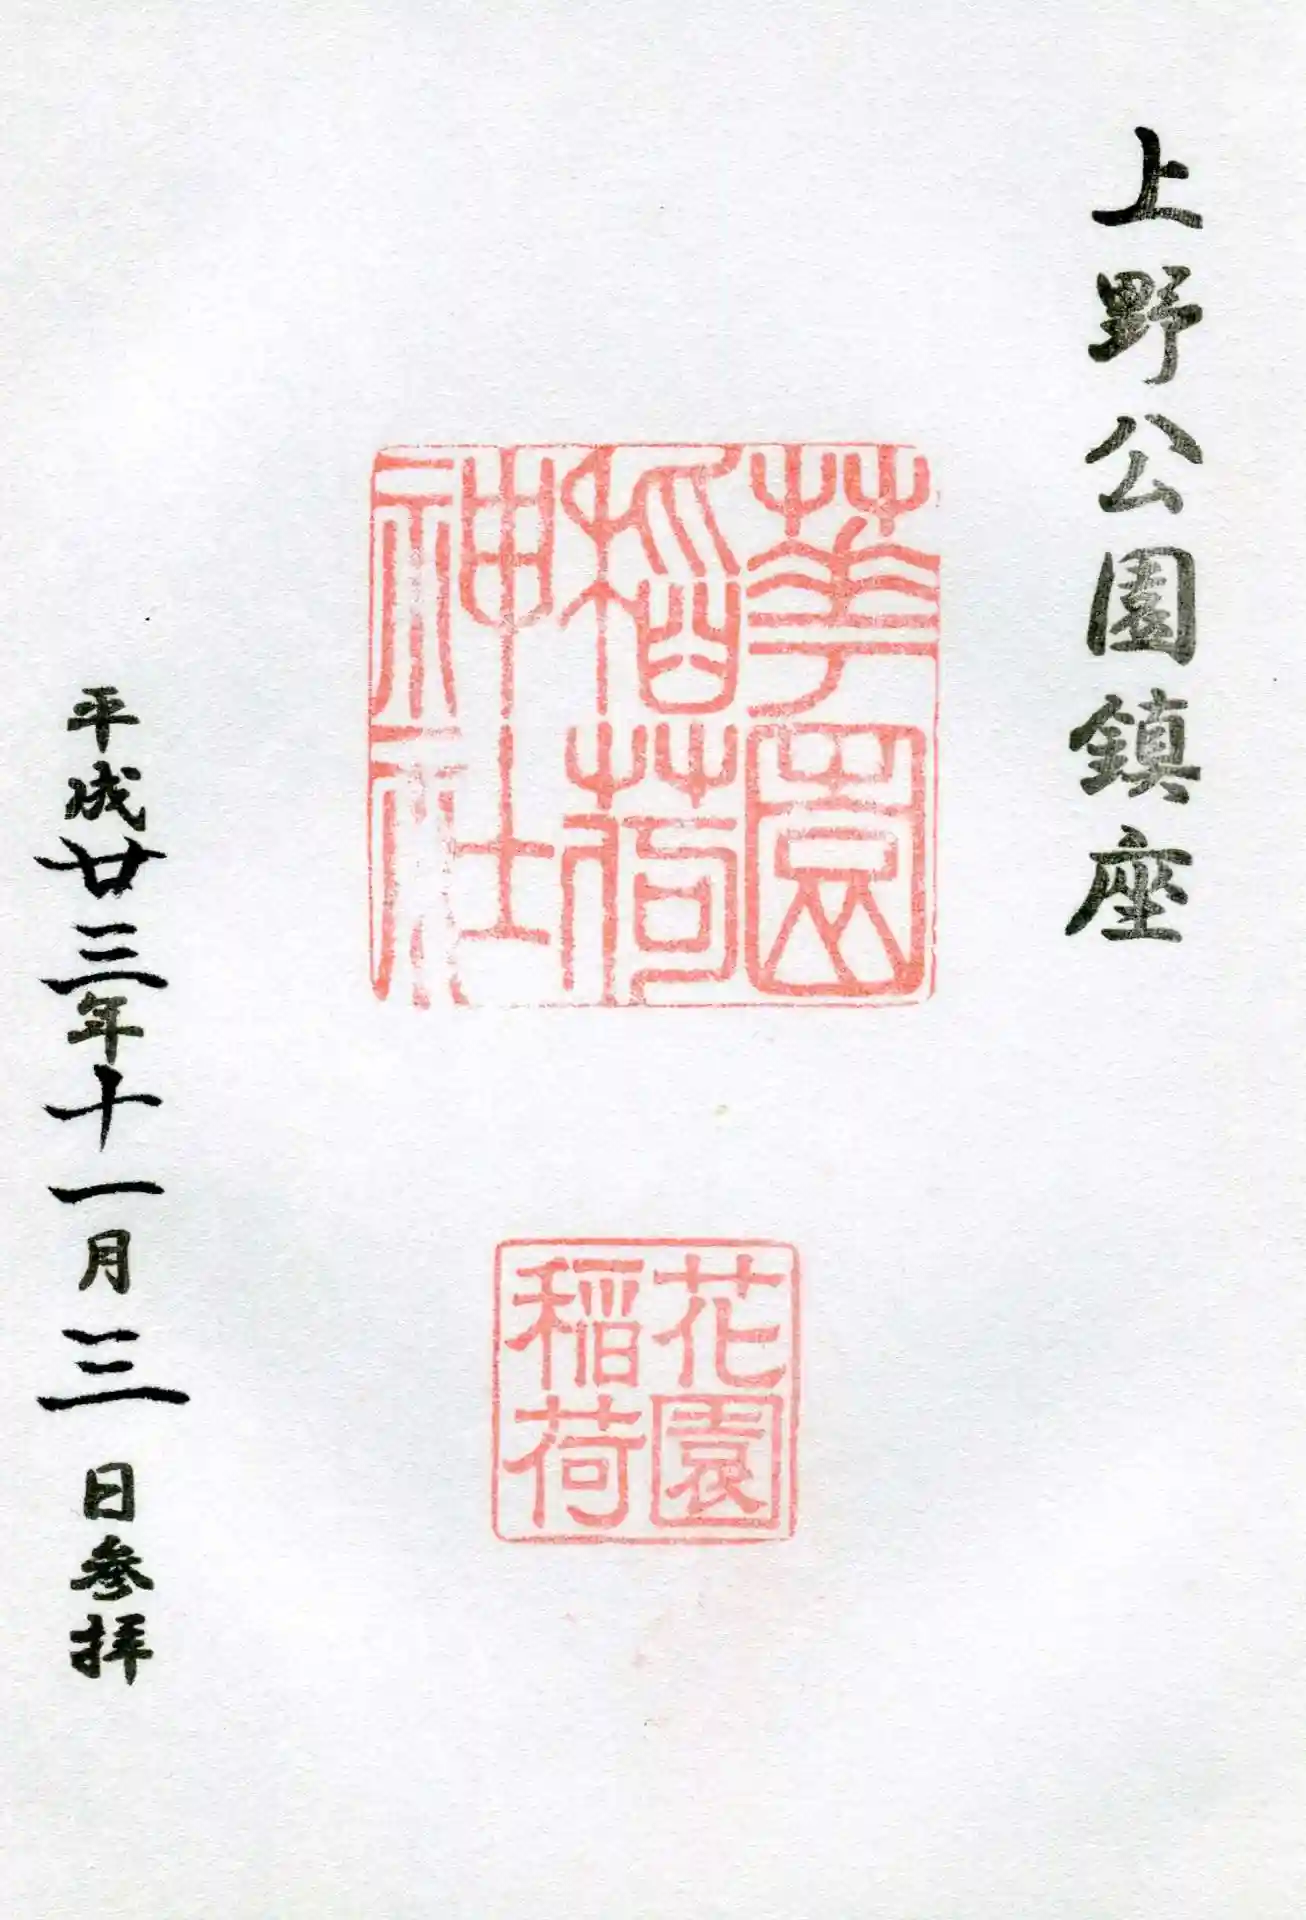 上野公園鎮座
華園
稲荷
神社
花園
稲荷
平成廿三年十一月三日参拝